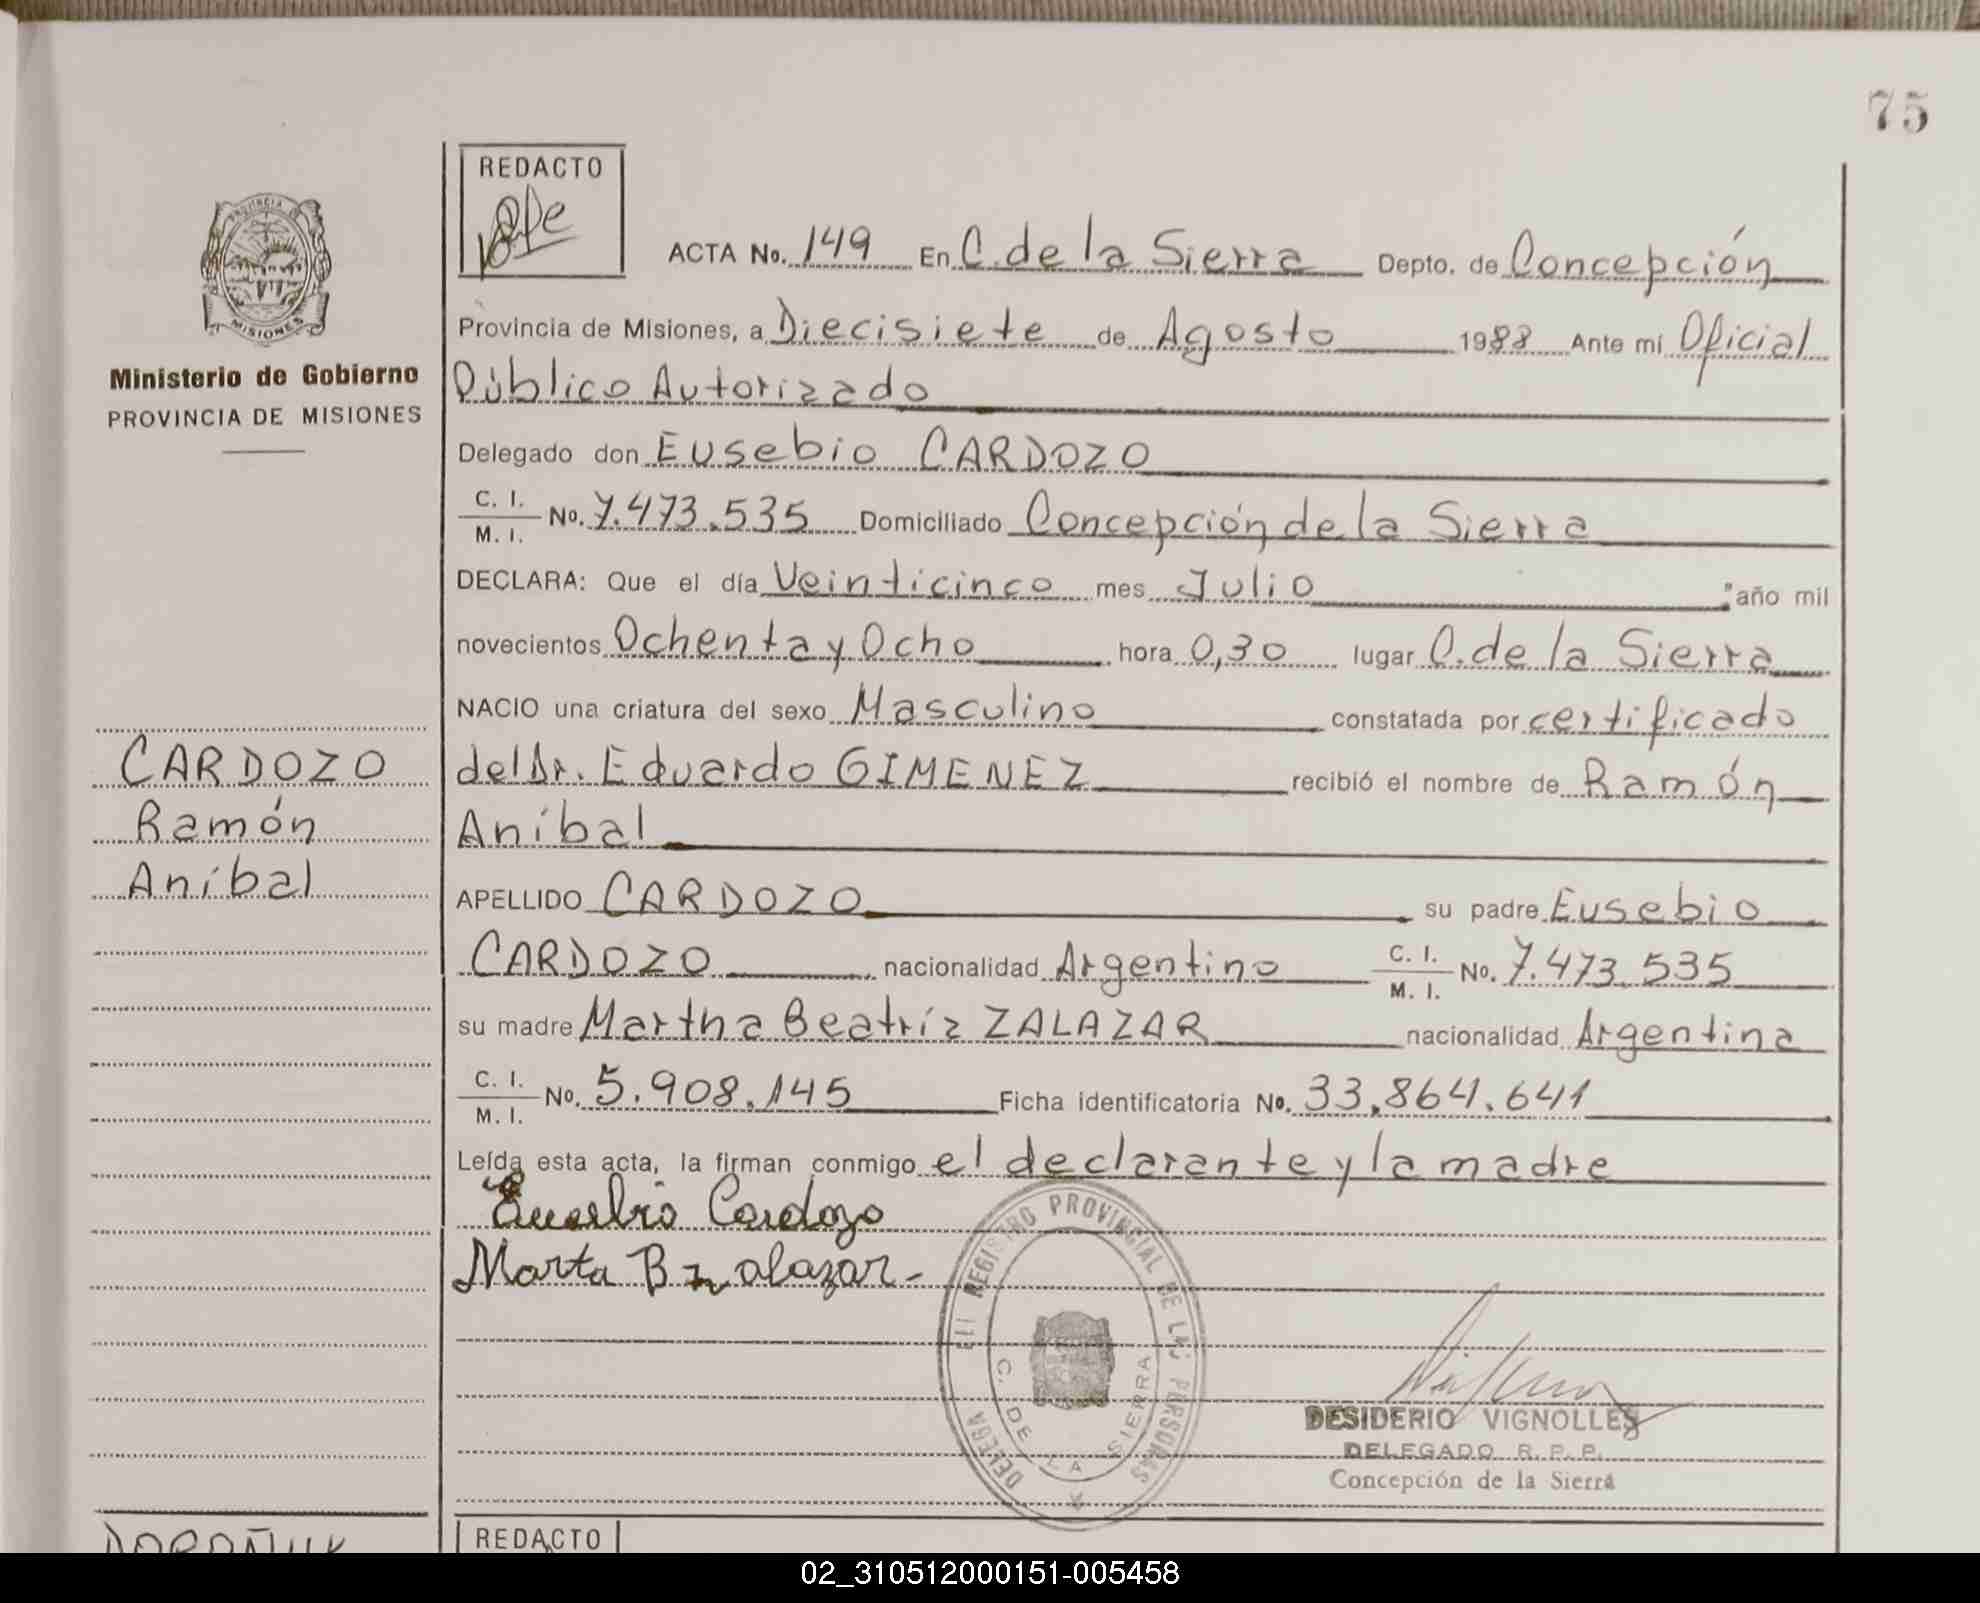 75
REDACTO
PROVINCIA
MISIONES
Ministerio de Gobierno
PROVINCIA DE MISIONES
ACTA No. 149 En C. de la Sierra Depto. de Concepción
Provincia de Misiones, a Diecisiete de Agosto 1988 Ante mí Oficial
Público Autorizado
Delegado don Eusebio CARDOZO
C. I. / M. I. No. 7.473.535 Domiciliado Concepción de la Sierra
DECLARA: Que el día Veinticinco mes Julio año mil
novecientos Ochenta y Ocho hora 0,30 lugar C. de la Sierra
NACIO una criatura del sexo Masculino constatada por certificado
del Dr. Eduardo GIMENEZ recibió el nombre de Ramón
Aníbal
CARDOZO
Ramón
Aníbal
APELLIDO CARDOZO su padre Eusebio
CARDOZO nacionalidad Argentino C. I. / M. I. No. 7.473.535
su madre Martha Beatríz ZALAZAR nacionalidad Argentina
C. I. / M. I. No. 5.908.145 Ficha identificatoria No. 33.864.641
Leída esta acta, la firman conmigo el declarante y la madre
Eusebio Cardozo
Marta B Zalazar-
REGISTRO PROVINCIAL DE LAS PERSONAS
C. DE LA SIERRA
DESIDERIO VIGNOLLES
DELEGADO R. P. P.
Concepción de la Sierra
REDACTO
02_310512000151-005458